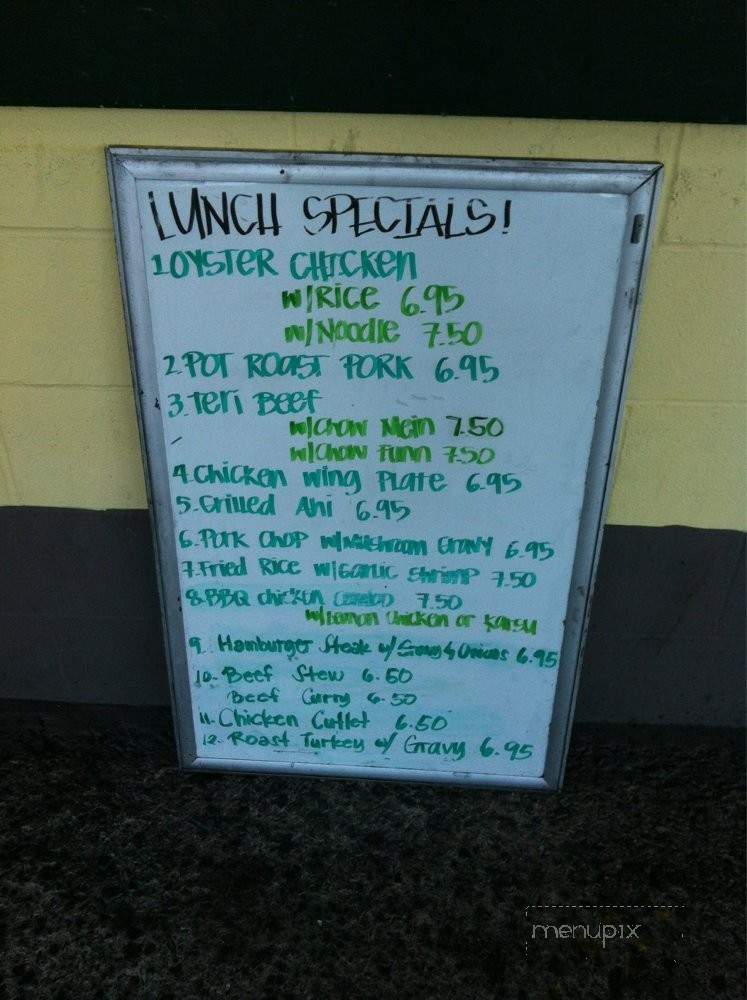 LUNCH SPECIALS!
1.OYSTER CHICKEN
w/RICE 6.95
w/Noodle 7.50
2.POT ROAST PORK 6.95
3.Teri BEEF
w/Chow Mein 7.50
w/Chow Funn 7.50
4.Chicken Wing Plate 6.95
5.Grilled Ahi 6.95
6.Pork Chop w/Mushroom Gravy 6.95
7.Fried Rice w/Garlic Shrimp 7.50
8.BBQ chicken combo 7.50
w/Lemon Chicken or Katsu
9. Hamburger Steak w/ Gravy & Onions 6.95
10. Beef Stew 6.50
Beef Curry 6.50
11. Chicken Cutlet 6.50
12. Roast Turkey w/ Gravy 6.95
menupix